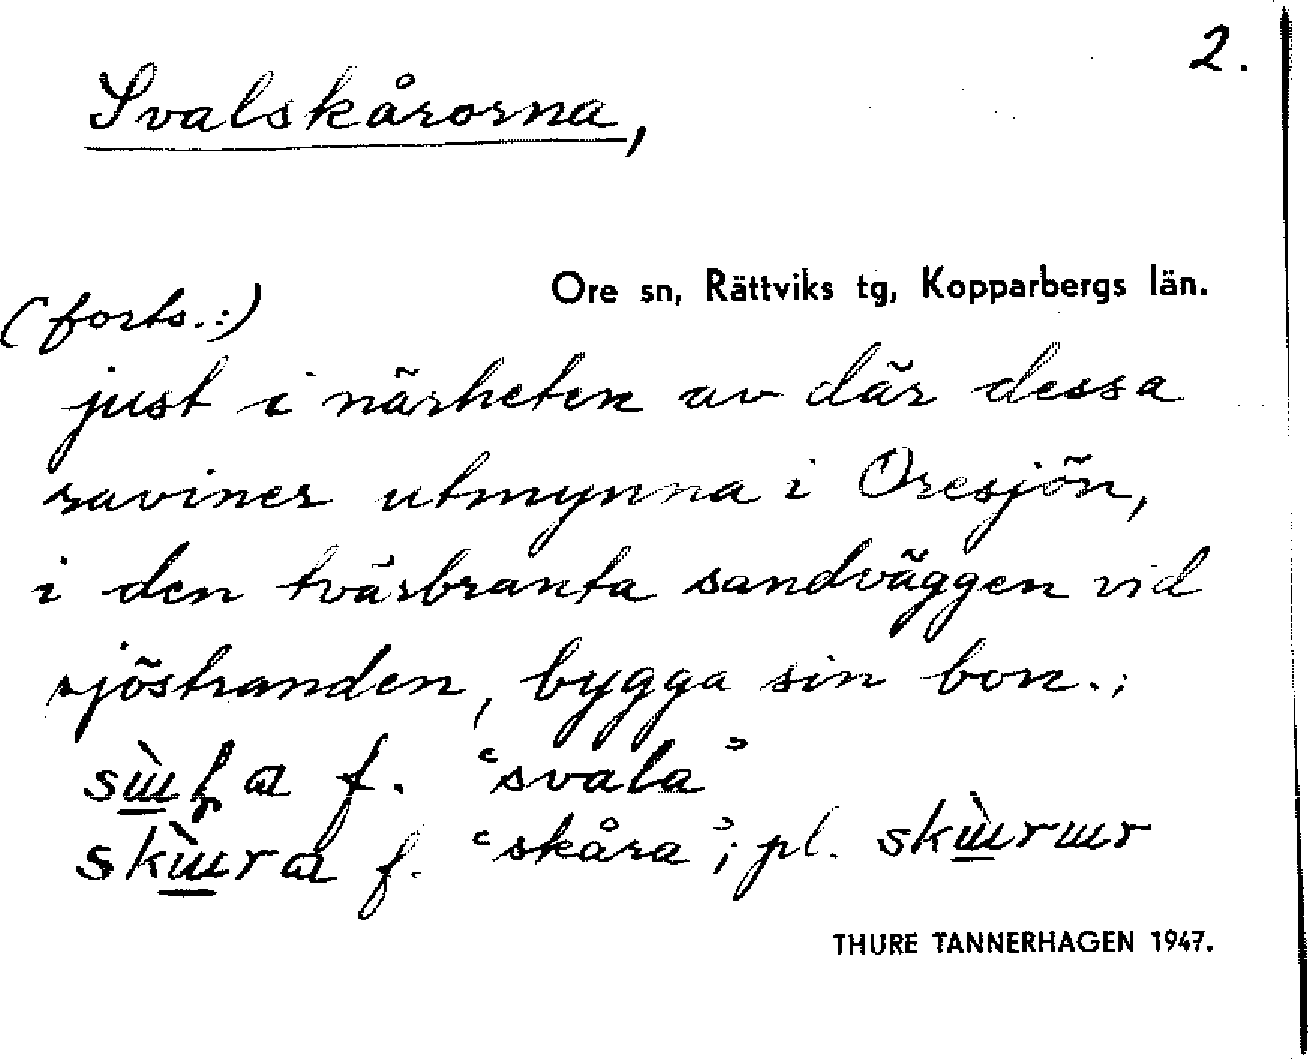 2.
Svalskårorna,
Ore sn, Rättviks tg, Kopparbergs län.
(forts.:)
just i närheten av där dessa
raviner utmynna i Oresjön,
i den tvärbranta sandväggen vid
sjöstranden, bygga sin bon.;
f. "svala"
f. "skåra"; pl.
THURE TANNERHAGEN 1947.